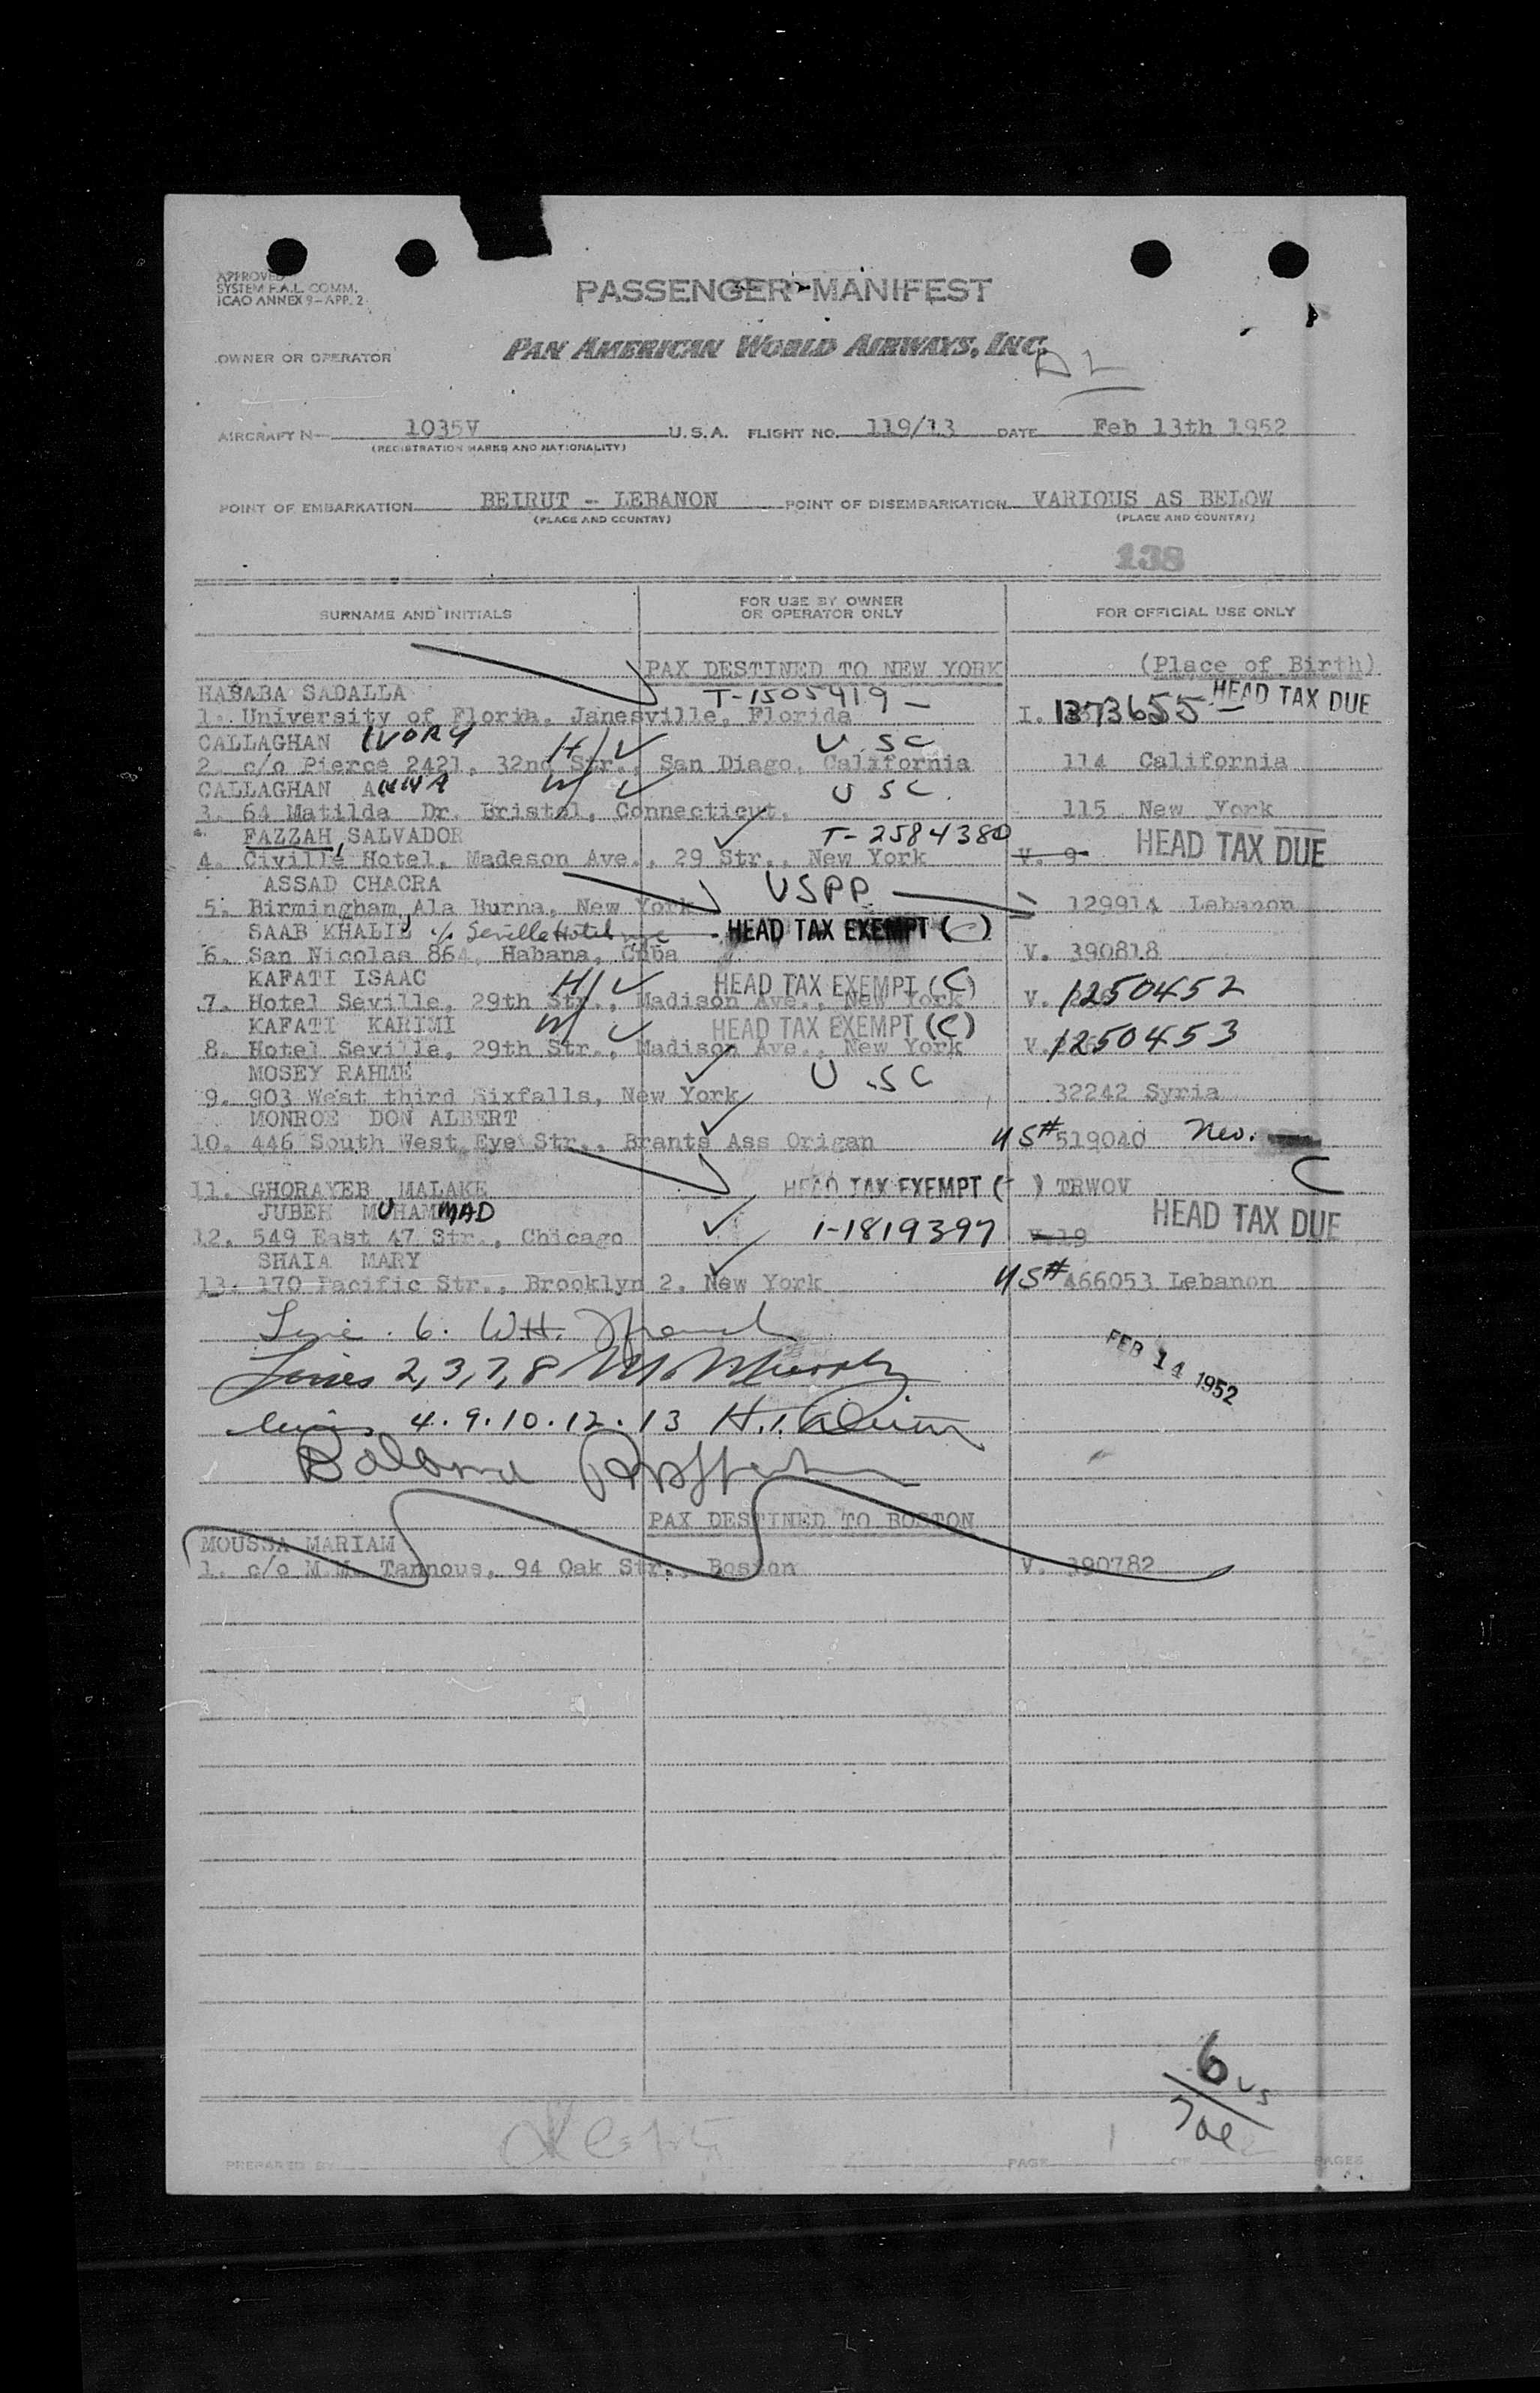 APPROVED
SYSTEM F.A.L. COMM.
ICAO ANNEX 9-APP. 2
PASSENGER MANIFEST
OWNER OR OPERATOR PAN AMERICAN WORLD AIRWAYS, INC.
AIRCRAFT N 1035V U.S.A. FLIGHT NO. 119/13 DATE Feb 13th 1952
(REGISTRATION MARKS AND NATIONALITY)
POINT OF EMBARKATION BEIRUT - LEBANON POINT OF DISEMBARKATION VARIOUS AS BELOW
(PLACE AND COUNTRY) (PLACE AND COUNTRY)
138
SURNAME AND INITIALS FOR USE BY OWNER OR OPERATOR ONLY FOR OFFICIAL USE ONLY
PAX DESTINED TO NEW YORK (Place of Birth)
HABABA SADALLA T-1505919 HEAD TAX DUE
1. University of Floria, Janesville, Florida I. 1373655
CALLAGHAN IVORY H/ U.SC
2. c/o Pierce 2421, 32nd Str., San Diago, California 114 California
CALLAGHAN ANNA W/ USC.
3. 64 Matilda Dr. Bristal, Connecticut. 115 New York
FAZZAH, SALVADOR T-2584380 HEAD TAX DUE
4. Civille Hotel, Madeson Ave., 29 Str., New York V. 9
ASSAD CHACRA USPP
5. Birmingham Ala Burna, New York 129914 Lebanon
SAAB KHALIL c/o Seville Hotel nyc HEAD TAX EXEMPT (C)
6. San Nicolas 864, Habana, Cuba V. 390818
KAFATI ISAAC H/ HEAD TAX EXEMPT (C)
7. Hotel Seville, 29th Str., Madison Ave., New York V. 1250452
KAFATI KARIMI W/ HEAD TAX EXEMPT (C)
8. Hotel Seville, 29th Str., Madison Ave., New York V. 1250453
MOSEY RAHME U.SC
9. 903 West third Sixfalls, New York 32242 Syria
MONROE DON ALBERT
10. 446 South West Eye Str., Brants Ass Origan US# 519040 Nev.
11. GHORAYEB MALAKE HEAD TAX EXEMPT ( ) TRWOV C
JUBEH MUHAMMAD HEAD TAX DUE
12. 549 East 47 Str., Chicago 1-1819397 V.19
SHAIA MARY
13. 170 Pacific Str., Brooklyn 2, New York US# 466053 Lebanon
Line . 6. W.H.
Lines 2,3,7,8 M. Murphy
FEB 14 1952
lines 4.9.10.12.13
PAX DESTINED TO BOSTON
MOUSSA MARIAM
1. c/o M.M. Tannous, 94 Oak Str., Boston V. 390782
6 US
7 ae
PREPARED BY PAGE 1 OF PAGES